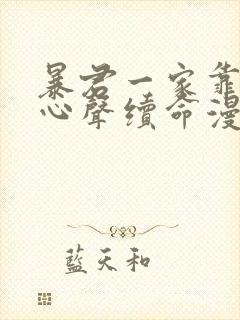 暴君一家靠
心聲續命漫
藍天和